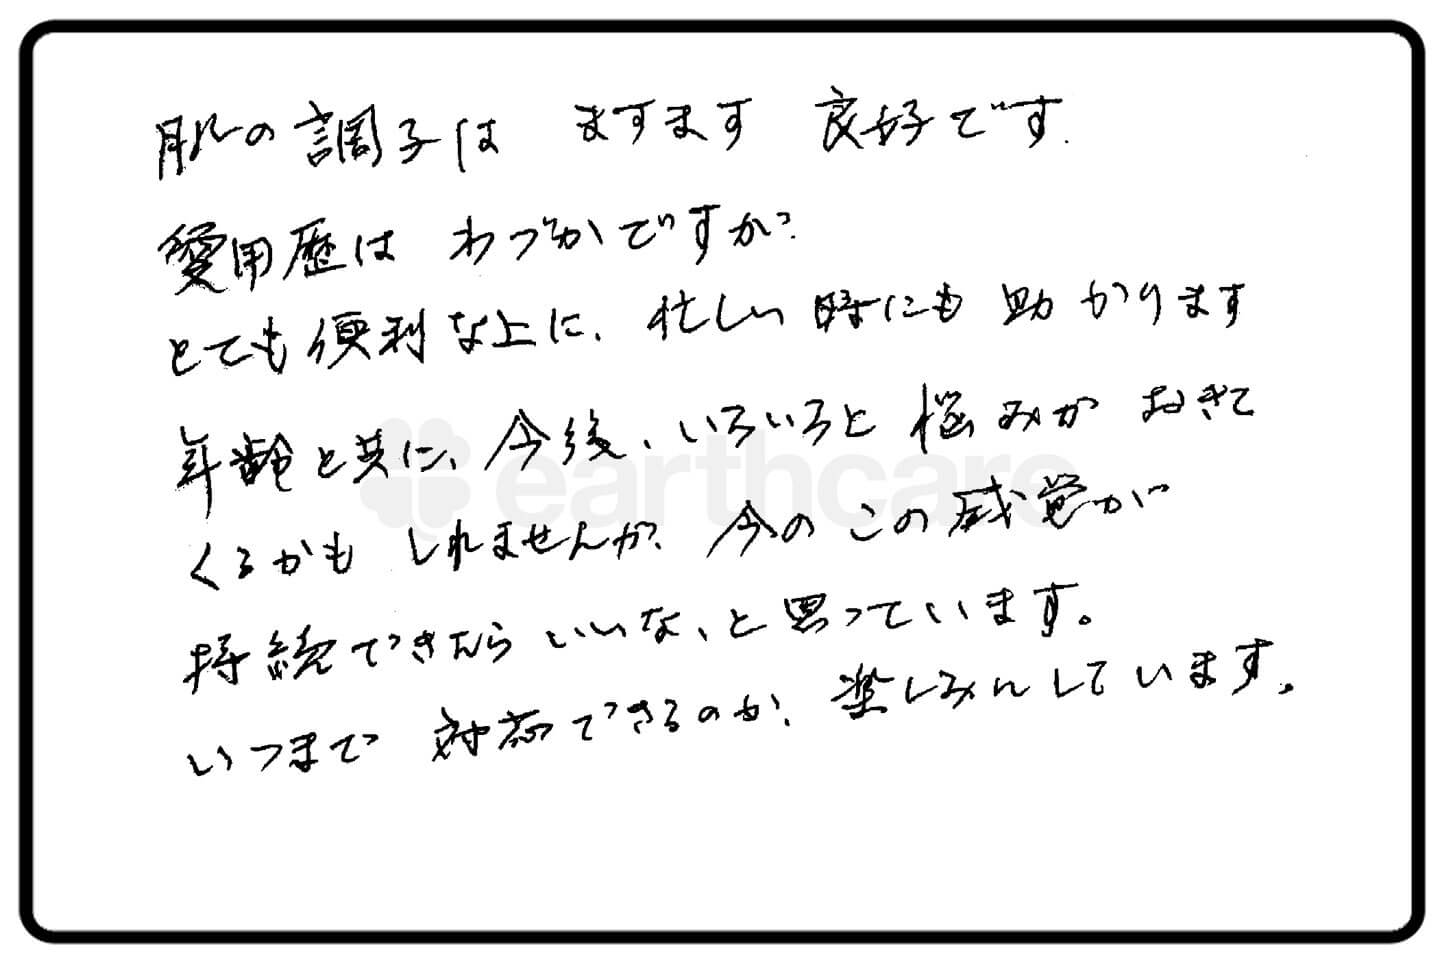 肌の調子は ますます 良好です.
愛用歴は わづかですが、
とても便利な上に、忙しい時にも助かります
年齢と共に、今後、いろいろと悩みが おきて
くるかも しれませんが、今の この感覚が
持続できたら いいな、と思っています。
いつまで 対応できるのか、楽しみにしています。
earthcare